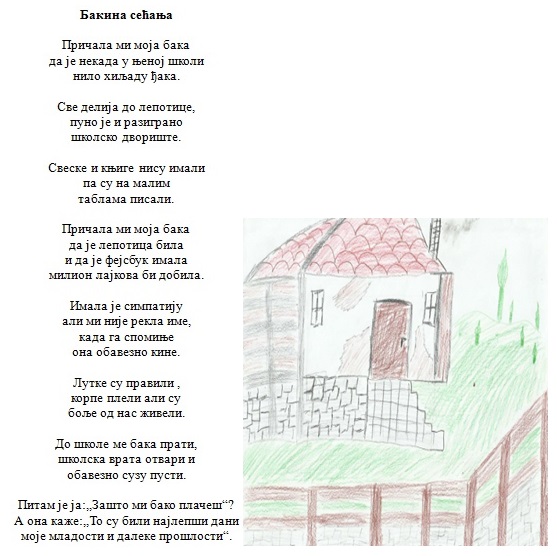 Бакина сећања
Причала ми моја бака
да је некада у њеној школи
нило хиљаду ђака.
Све делија до лепотице,
пуно је и разиграно
школско двориште.
Свеске и књиге нису имали
па су на малим
таблама писали.
Причала ми моја бака
да је лепотица била
и да је фејсбук имала
милион лајкова би добила.
Имала је симпатију
али ми није рекла име,
када га спомиње
она обавезно кине.
Лутке су правили ,
корпе плели али су
боље од нас живели.
До школе ме бака прати,
школска врата отвари и
обавезно сузу пусти.
Питам је ја:,,Зашто ми бако плачеш“?
А она каже:,,То су били најлепши дани
моје младости и далеке прошлости“.